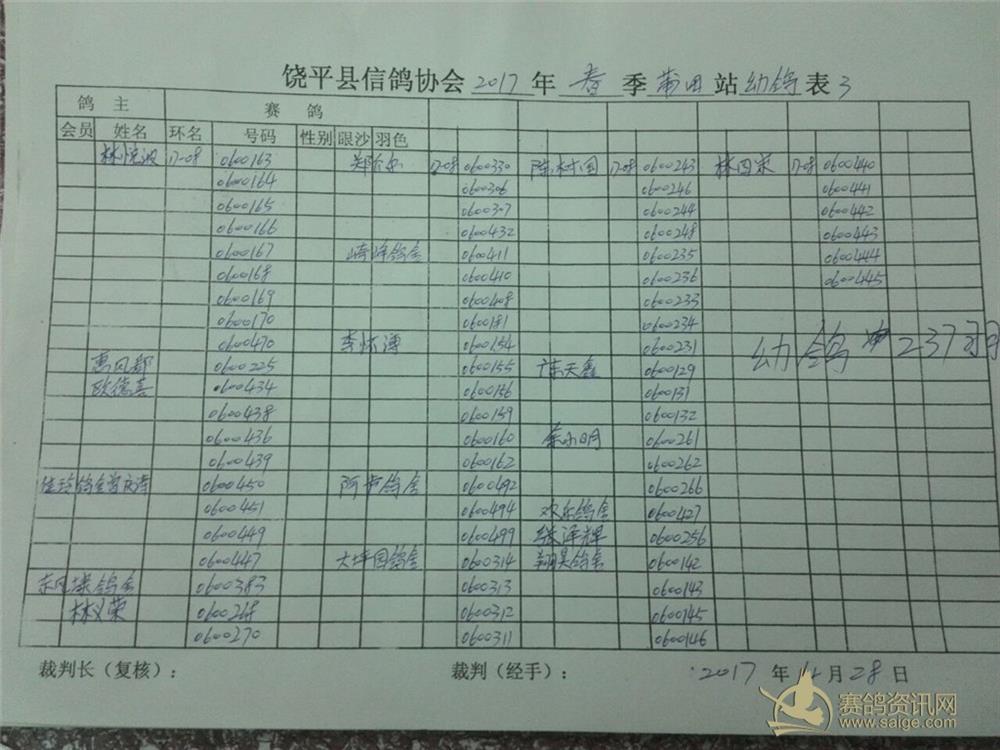 饶平县信鸽协会 2017 年 春 季 莆田 站 幼鸽 表 3
鸽 主 赛 鸽
会员 姓名 环名 号码 性别 眼沙 羽色
林悦波 17-08 0600163 17-08 0600330 陈树国 17-08 0600243 林国荣 17-08 0600440
0600164 0600306 0600246 0600441
0600165 0600307 0600244 0600442
0600166 0600432 0600248 0600443
0600167 崎峰鸽舍 0600411 0600235 0600444
0600168 0600410 0600236 0600445
0600169 0600408 0600233
0600170 0600181 0600234
0600470 李怀涛 0600154 0600231
幼鸽 237羽
惠风郡 0600225 0600155 陈天鑫 0600129
欧德喜 0600434 0600156 0600131
0600438 0600159 0600132
0600436 0600160 余小明 0600261
0600439 0600162 0600262
鸽舍 0600450 阿卢鸽舍 0600492 0600266
0600451 0600494 欢乐鸽舍 0600427
0600449 0600499 张泽辉 0600256
0600447 大坪园鸽舍 0600314 翔昊鸽舍 0600142
东风埭鸽舍 0600383 0600313 0600143
林义荣 0600268 0600312 0600145
0600270 0600311 0600146
裁判长（复核）： 裁判（经手）： 2017 年 月 28 日
赛鸽资讯网
www.saige.com